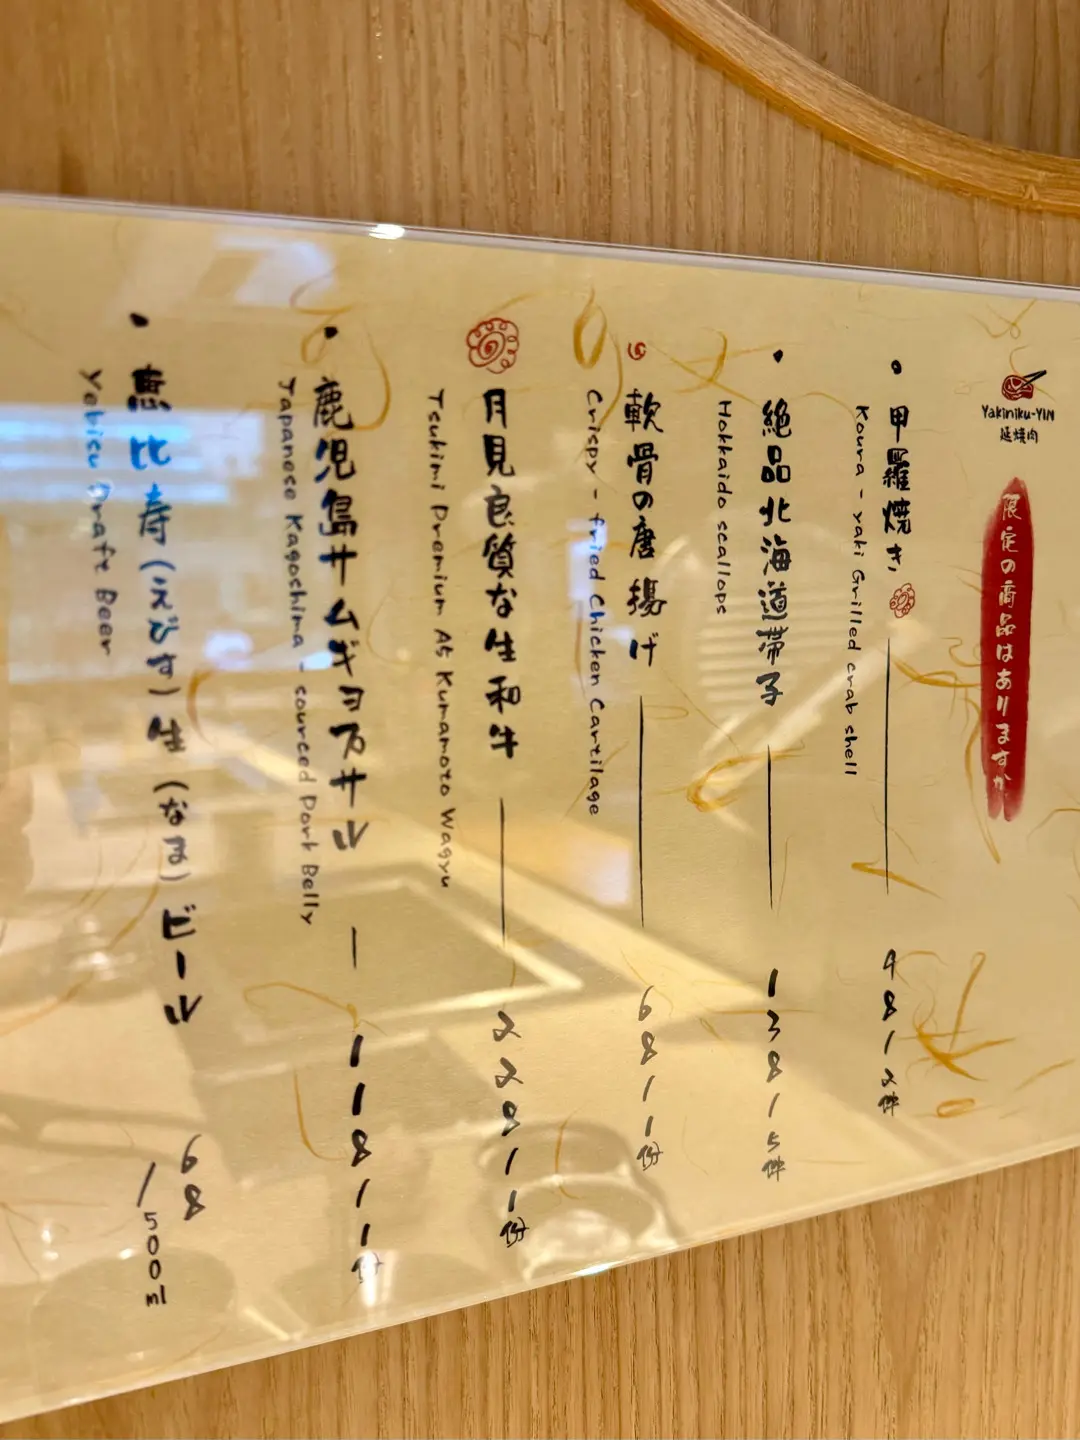 Yakiniku-YIN
延燒肉
限定の商品はありますか
甲羅焼き
Koura - yaki Grilled crab shell
48/2件
絶品北海道帯子
Hokkaido scallops
138/5件
軟骨の唐揚げ
Crispy - fried Chicken Cartilage
68/1份
月見良質な生和牛
Tsukimi Premium A5 Kumamoto Wagyu
228/1份
鹿児島サムギョプサル
Japanese Kagoshima - sourced Pork Belly
118/1份
恵比寿(えびす)生(なま)ビール
Yebisu Draft Beer
68/500ml